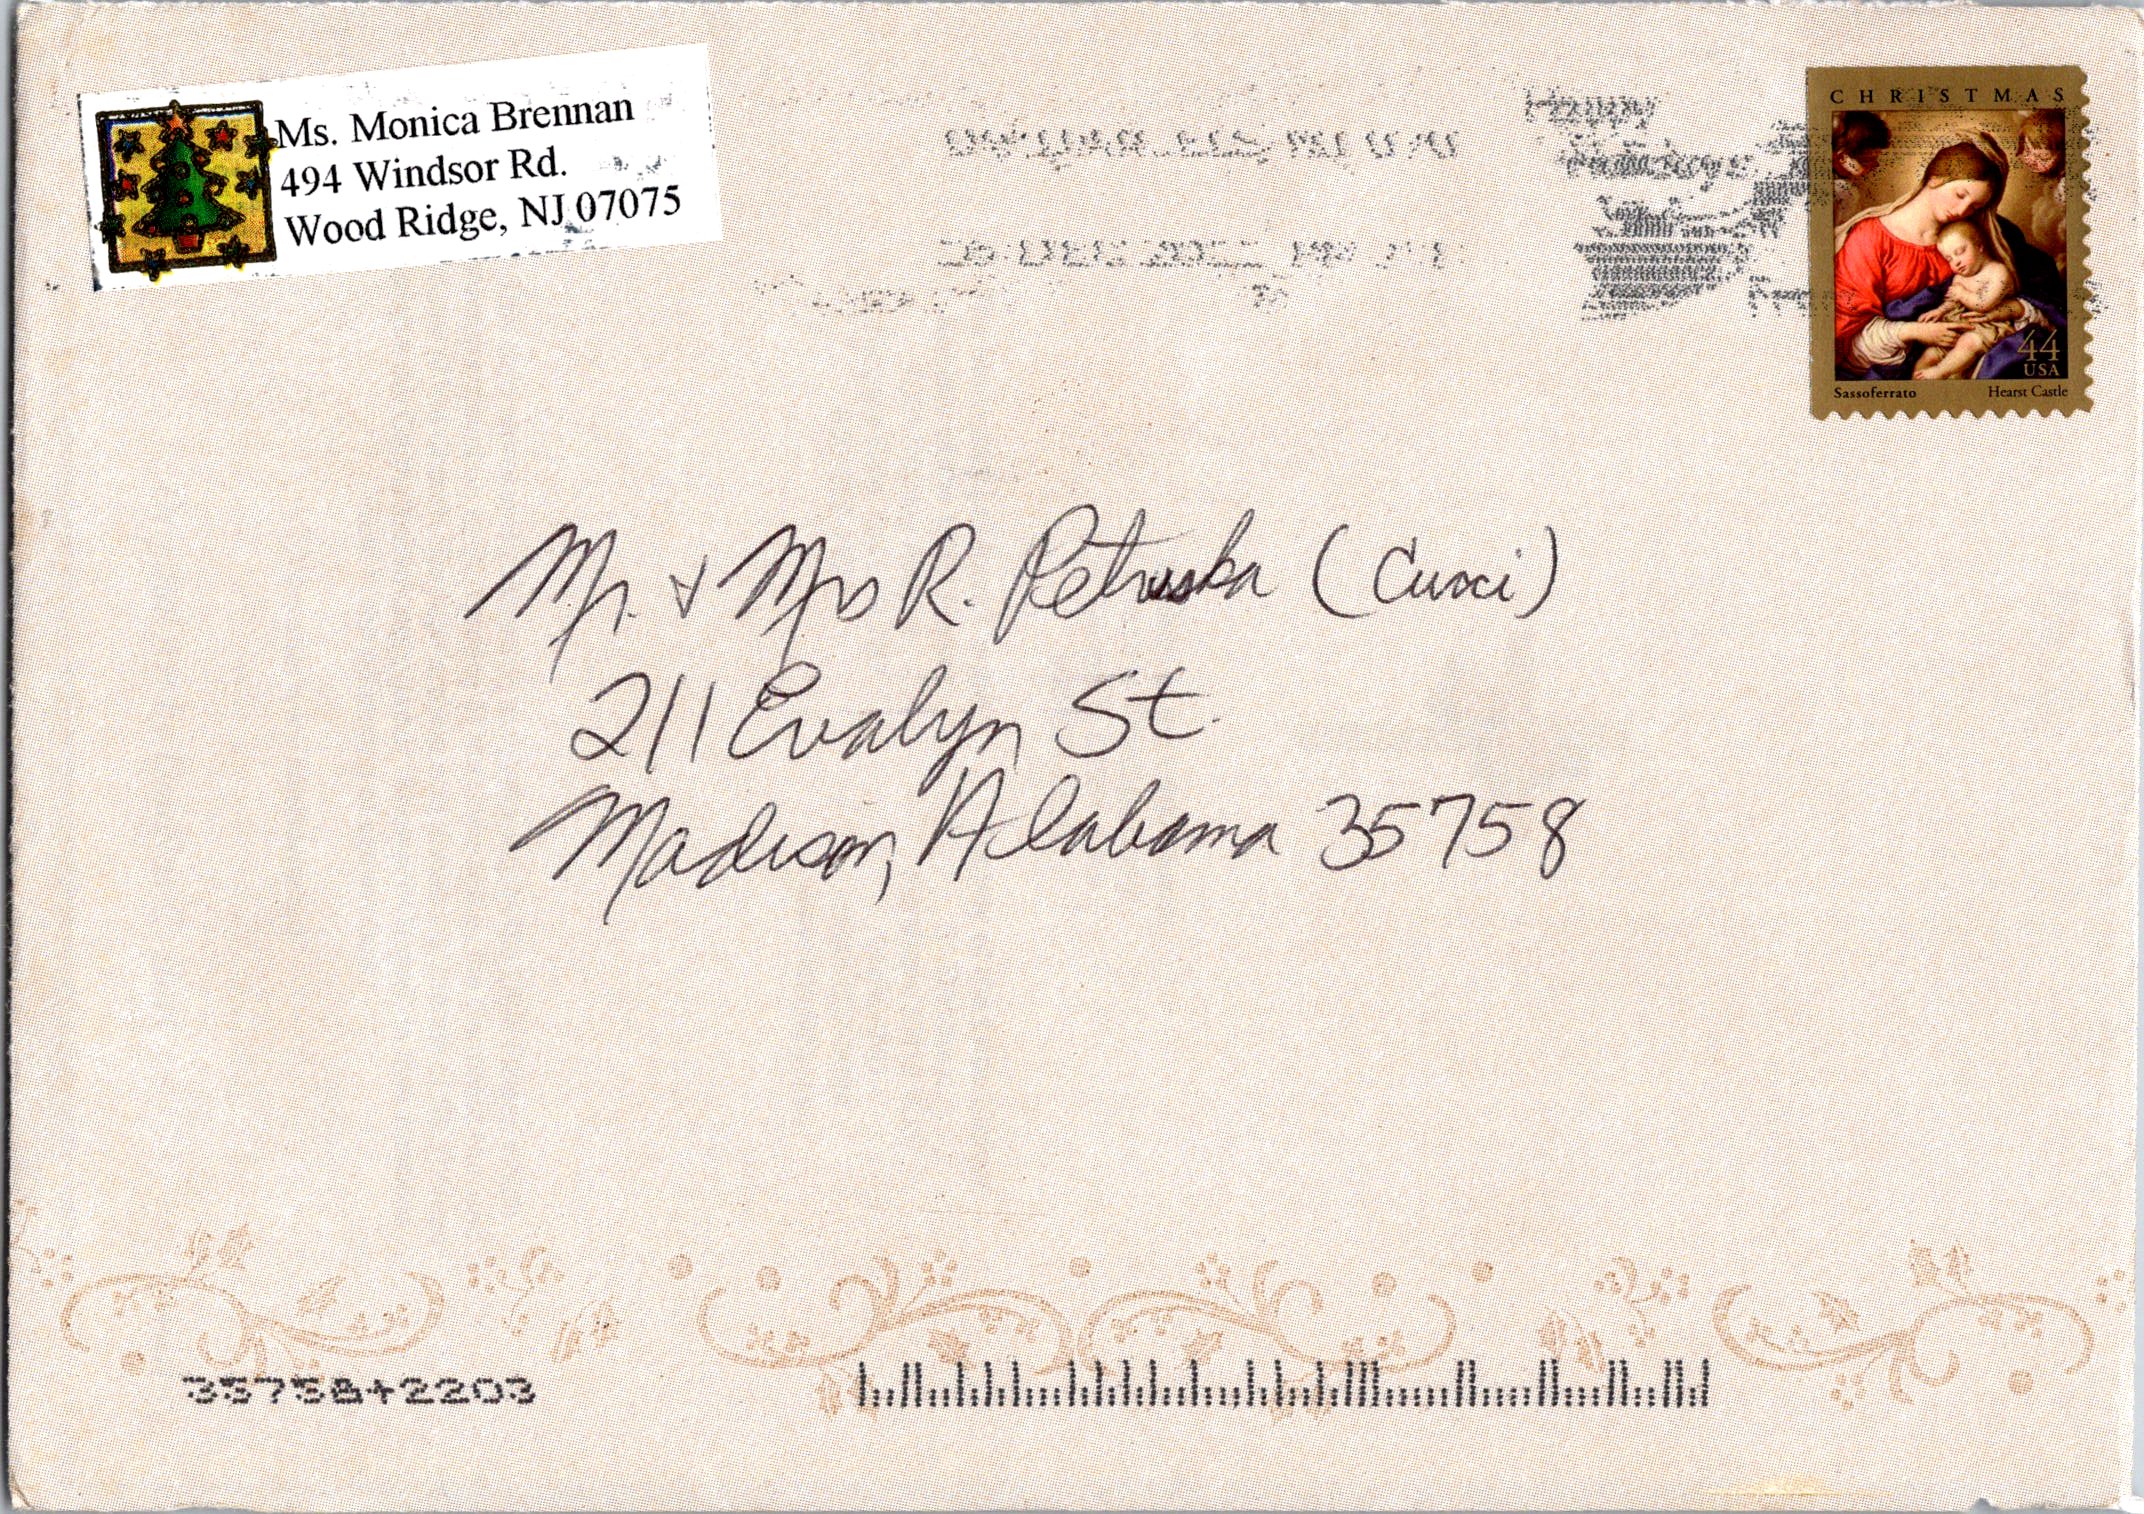 Ms. Monica Brennan
494 Windsor Rd.
Wood Ridge, NJ 07075
Happy
Holidays
CHRISTMAS
44
USA
Sassoferrato Hearst Castle
Mr. & Mrs R. Petruska (Cuoci)
211 Evalyn St.
Madison, Alabama 35758
35758+2203